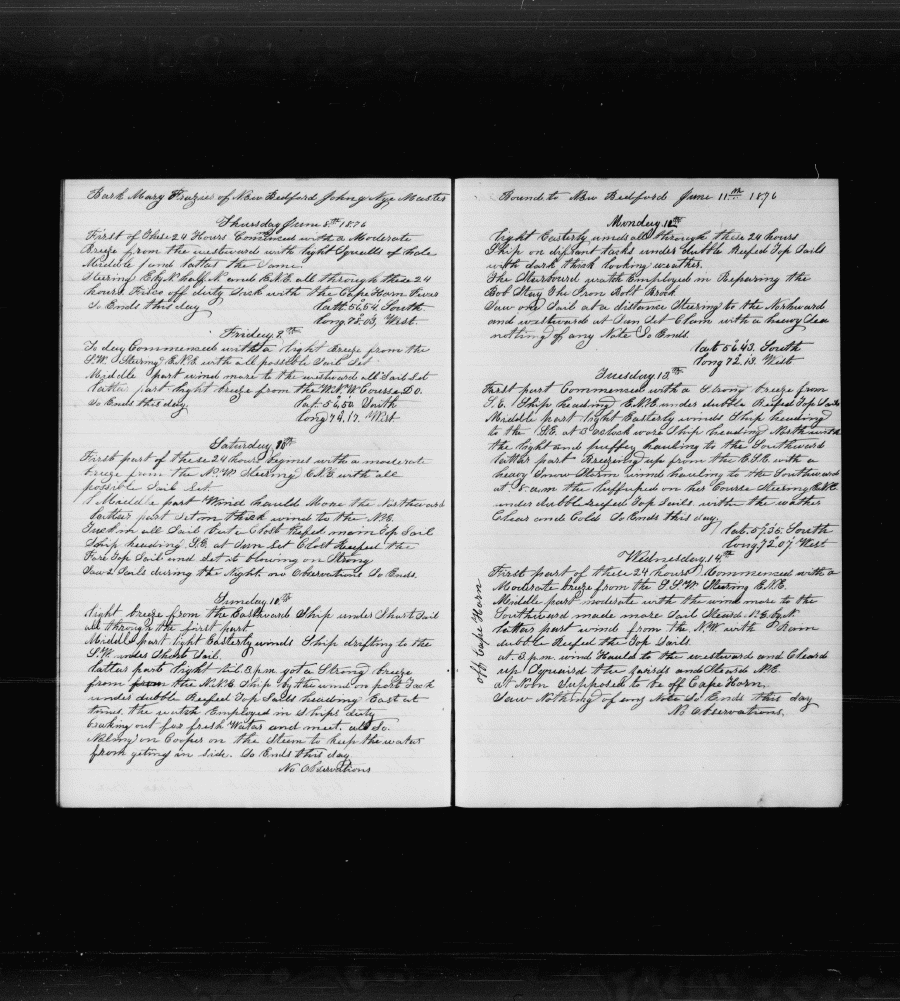 Bark Mary Frazier of New Bedford John G Nye Master
Thursday June 8th 1876
First of these 24 Hours Comenced with a Moderate
Breeze from the westward with light Squalls of Hale
Middle and latter the Same.
Steering E by N half N and E.N.E. all through these 24
hours off duty Sick with the Cape Horn Fever
So Ends this day Latt. 56.54. South.
Long 78.03, West.
Friday 9th
To day Commenced with a light Breeze from the
S.W. Stering E.N.E with all possible Sail Set
Middle part wind more to the westward all Sail Set
latter part light breeze from the W.N.W. Course Do.
So Ends this day Lat. 56.50 South
Long 74.17. West.
Saturday 10th
First part of these 24 hours begines with a moderate
breeze from the N.W Steering E.N.E. with all
possible Sail Set.
Middle part Wind hauld Mone the Northward
latter part Set in thick wind to the N.E.
Took in all Sail Exce Close Refed main Top Sail
Ship heading S.E. at Sun Set Close Reefed the
Fore Top Sail and Set it blowing on Strong
Saw 2 Sails during the Night. no Observations So Ends.
Sunday 11th
Light breeze from the Eastward Ship under Short Sail
all through the first part
Middle part light Easterly winds Ship drifting to the
S.W. under Short Sail.
latter part light till 3 p.m. got a Strong breeze
from from the N.N.E. Ship by the wind on port Tack
under dubble Reefed Top Sails heading East at
times. the watch Employed in Ships duty
braking out for fresh Water and meet. all So.
on Cooper on the Steem to keep the water
from geting in Side. So Ends this day.
No Observations
Bound to New Bedford June 11th 1876
Monday 12th
Light Easterly winds all through these 24 hours
Ship on difrant tacks under dubble Reefed Top Sails
with dark thick looking weather.
The Starbourd watch Employed in Reparing the
Bob Stay the Iron Bolt Broek
Saw one Sail at a distance Steering to the Northward
and westward at Sun Set Clam with a heavy Sea
nothing of any Note So Ends.
Lat 56.43. South
Long 72.13. West
Tuesday 13th
First part Commenced with a Strong breeze from
S.E. Ship heading E.N.E under dubble Reefed Top Sails
Middle part light Easterly winds Ship heading
to the S.E. at 3 oclock wore Ship heading North with
the light and puffey hauling to the Southward
latter part Breezing up from the E.S.E with a
heavy Snow Storm wind hauling to the Southward
at 8. a.m the on her Course Steering E.N.E.
under dubble reefed Top Sails. with the wather
Clear and Cold So Ends this day.
Lat. 57.35. South
Long. 72.07 West
Wednesday 14th
First part of these 24 hours Commenced with a
Moderate breeze from the S.S.W Steering E.N.E.
Middle part moderate with the wind more to the
Southward made more Sail Steard N.E. by E
latter part wind from the N.W with Rain
dubble Reefed the Top Sails
at 3. p.m. wind Hauld to the westward and Cleard
up Squaird the Yards and Steard N.E.
At Noon Supposed to be off Cape Horn.
Saw Nothing of any Note So Ends this day
No Observations.
off Cape Horn